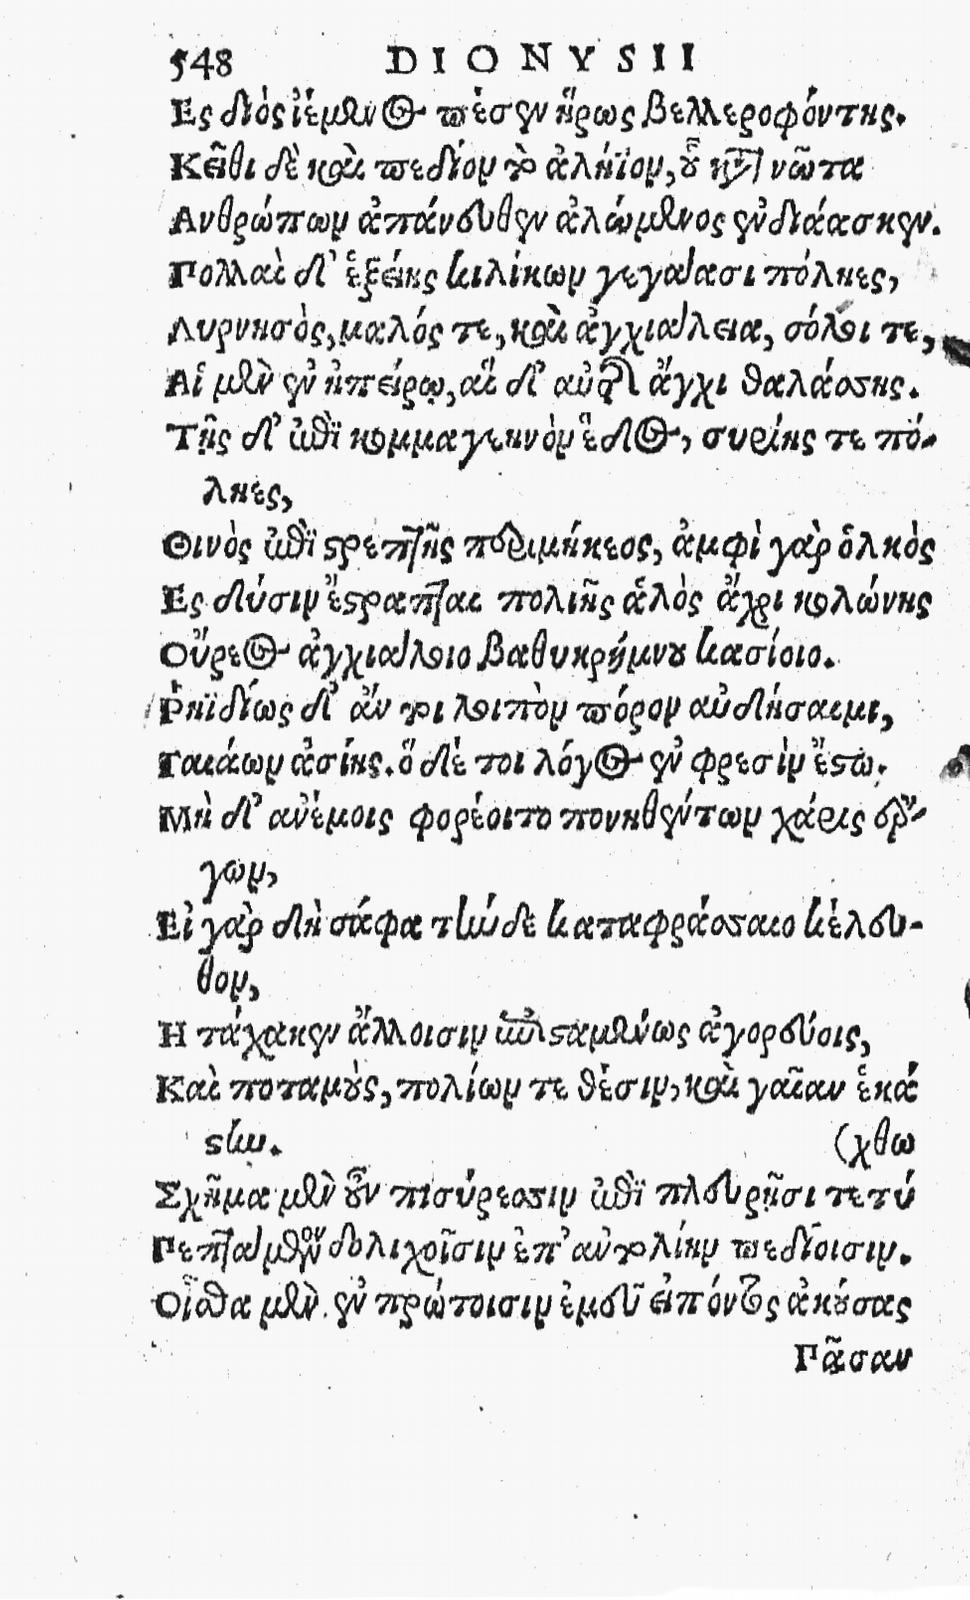 548 DIONYSII
Ες διὸς ἱέμενος πέσεν ἥρως βελλεροφόντης.
Κεῖθι δὲ καὶ πεδίον τὸ ἀλήϊον, οὗ κατὰ νῶτα
Ανθρώπων ἀπάνευθεν ἀλώμενος ἐνδιάασκεν.
Πολλαὶ δ' ἑξείης κιλίκων γεγάασι πόληες,
Λυρνησὸς, μαλός τε, καὶ ἀγχιάλεια, σόλοι τε,
Αἱ μὲν ἐν ἠπείρῳ, αἱ δ' αὐτῆς ἄγχι θαλάσσης.
Τῆς δ' ἐπὶ κομμαγεηνὸν ἕδος, συρίης τε πό-
ληες,
Θινὸς ἐπὶ στρεπτῆς περιμήκεος, ἀμφὶ γὰρ ὁλκὸς
Ες δύσιν ἔστραπται πολιῆς ἁλὸς ἄχρι κολώνης
Οὔρεος ἀγχιάλοιο βαθυκρήμνου κασίοιο.
Ρηϊδίως δ' ἄν τοι λοιπὸν πόρον αὐδήσαιμι,
Γαιάων ἀσίης. ὁ δέ τοι λόγος ἐν φρεσὶν ἔστω.
Μὴ δ' ἀνέμοις φορέοιτο πονηθέντων χάρις ἔρ-
γων,
Εἰ γὰρ δὴ σάφα τήνδε καταφράσσαιο κέλευ-
θον,
Η τάχα κεν ἄλλοισιν ἐπισταμένως ἀγορεύοις,
Καὶ ποταμοὺς, πολίων τε θέσιν, καὶ γαῖαν ἑκά
στην. (χθω
Σχῆμα μὲν οὖν πισύρεσσιν ἐπὶ πλευρῇσι τετύ
Πεπταμένον δολιχοῖσιν ἐπ' ἀντολίην πεδίοισιν.
Οἶσθα μὲν ἐν πρώτοισιν ἐμεῦ εἰπόντος ἀκούσας
Πᾶσαν